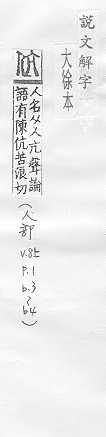 説文解字
大徐本
人名从人亢聲論
語有陳伉苦浪切
(人部
v.8上
p.1
b.3
b4)